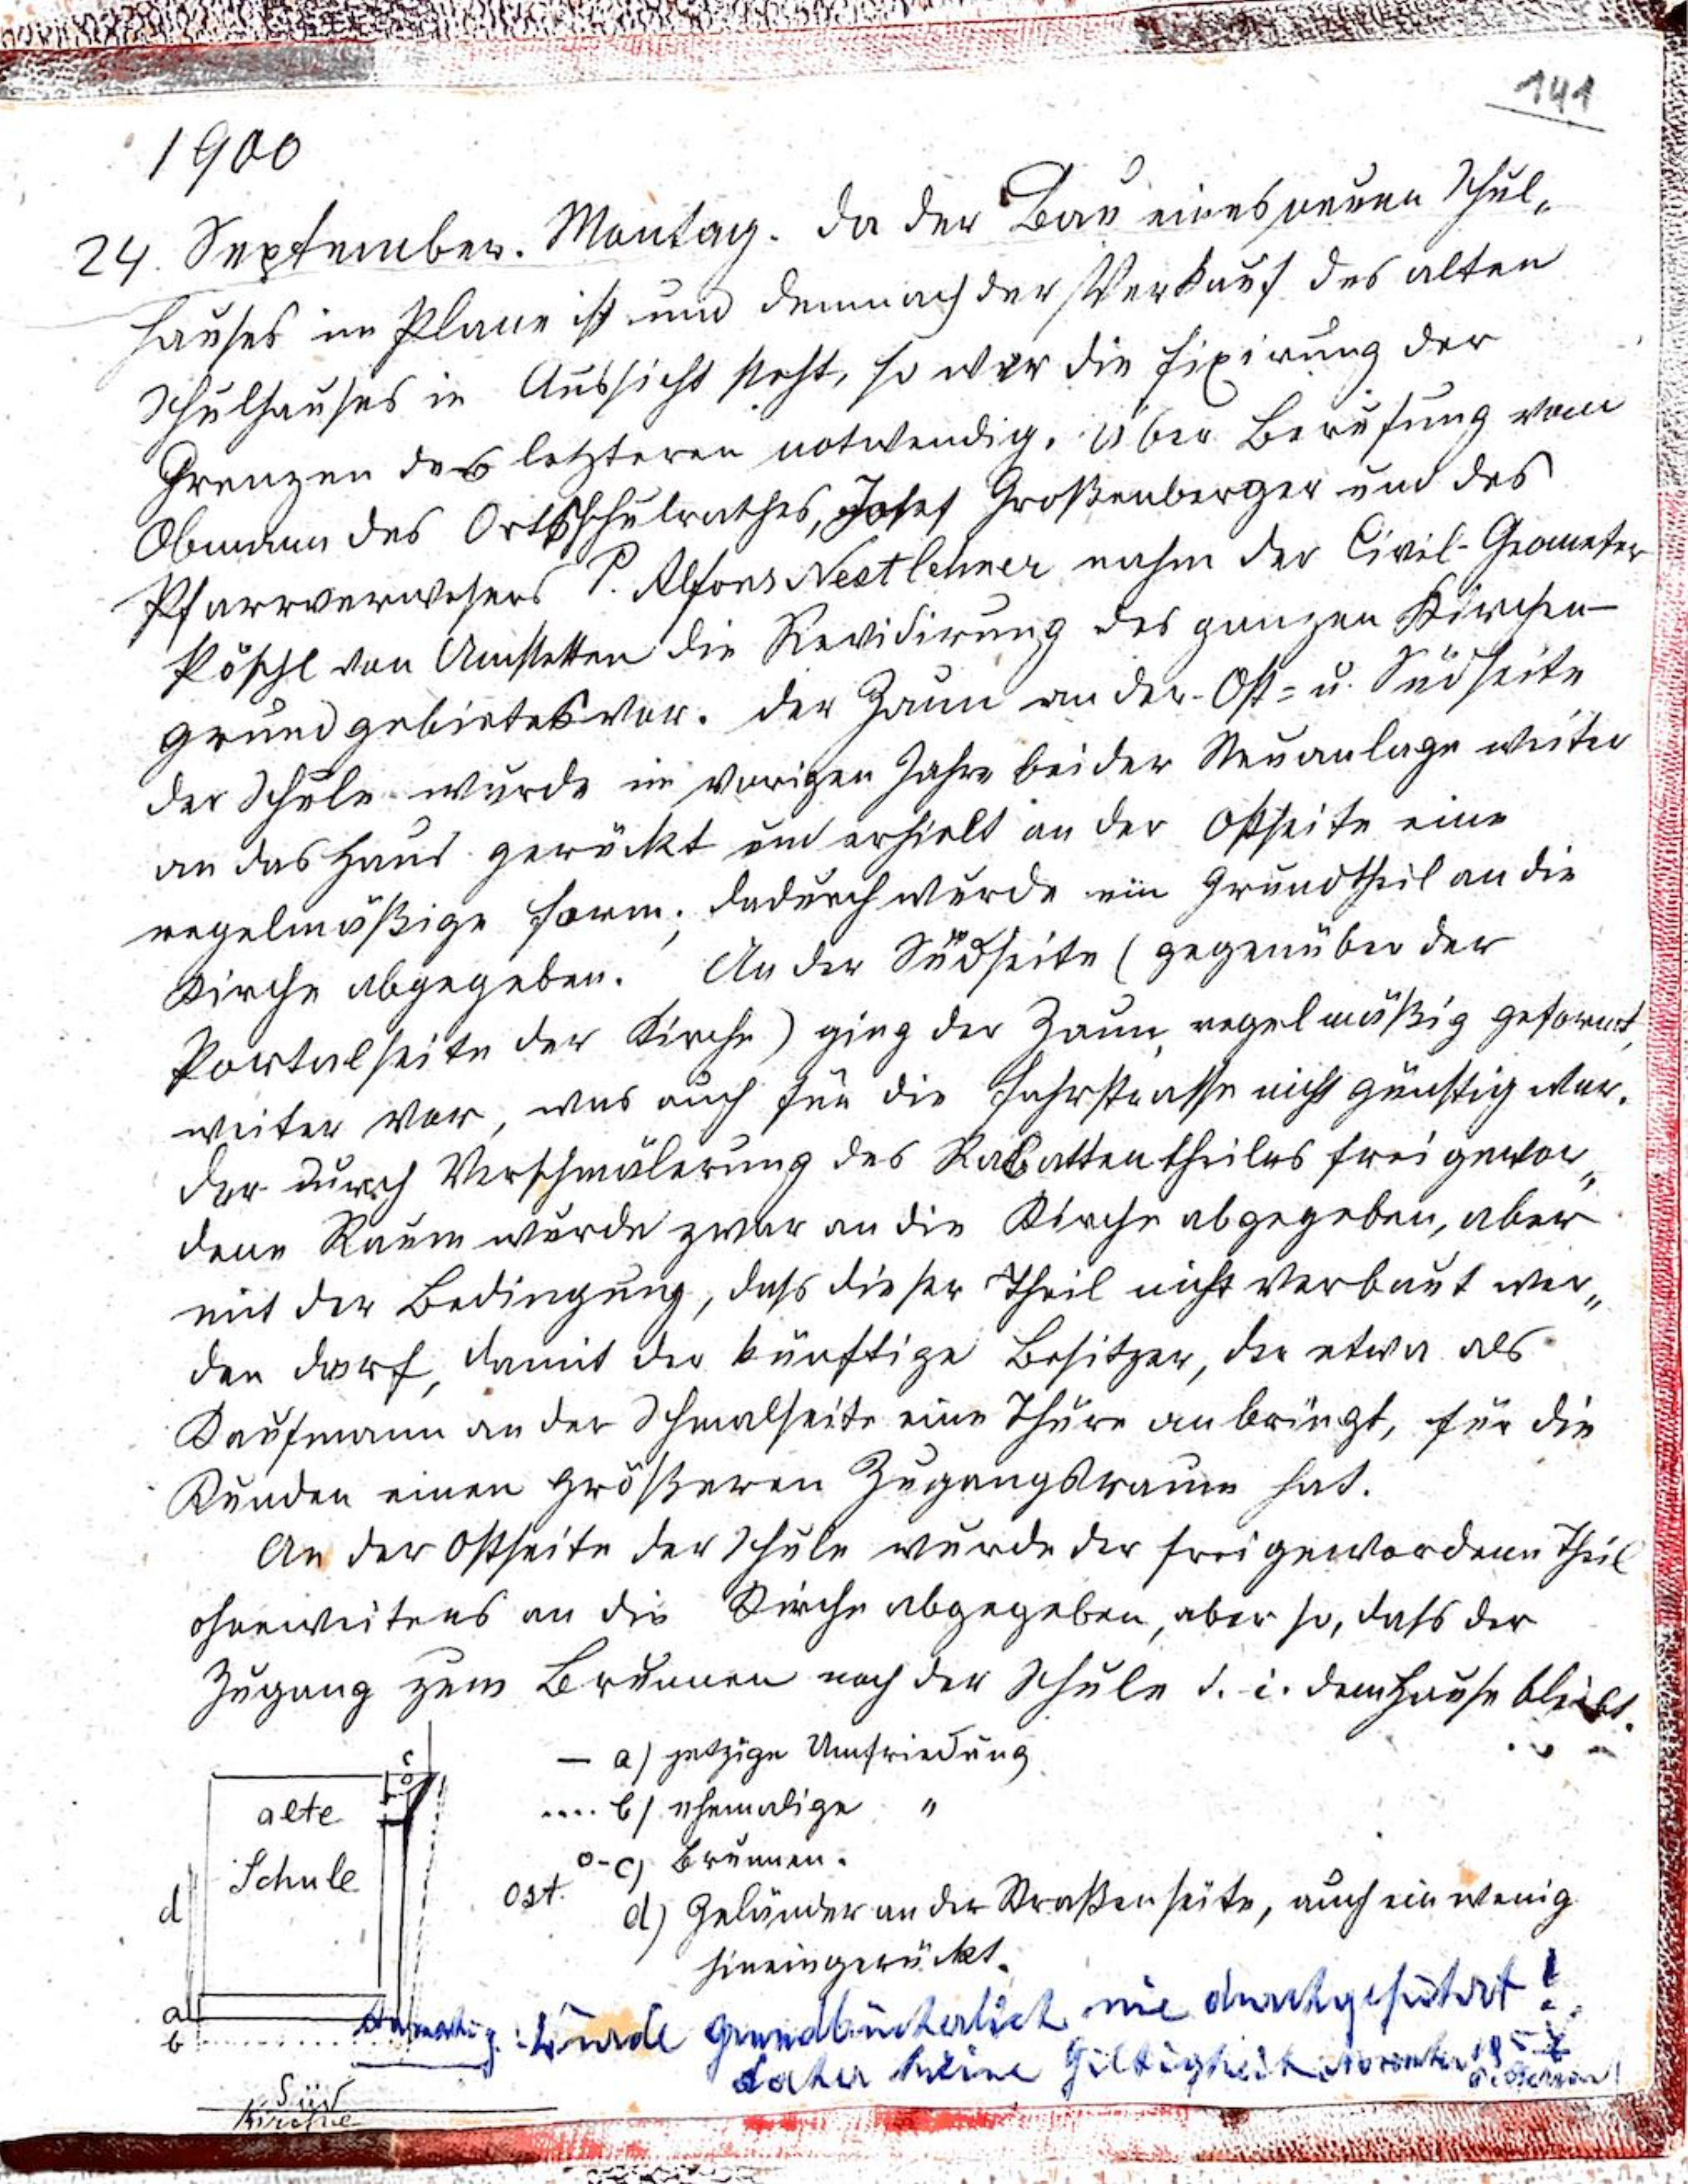 141
1900
24. September. Montag. Da der Bau eines neuen Schul„
hauses im Plane ist und demnach der Verkauf des alten
Schulhauses in Aussicht steht, so war die Fixirung der
Grenzen des letzteren notwendig. Über Berufung vom
Obmann des Ortsschulrathes, Josef Großenberger und des
Pfarrverwesers P. Alfons Nestlehner nahm der Civil-Geometer
Pöschl von Amstetten die Revidirung des ganzen Kirchen-
grundgebietes vor. Der Zaun an der Ost= u. Südseite
der Schule wurde im vorigen Jahre bei der Neuanlage weiter
an das Haus gerückt und erhielt an der Ostseite eine
regelmäßige Form; dadurch wurde ein Grundtheil an die
Kirche abgegeben. An der Südseite (gegenüber der
Portalseite der Kirche) ging der Zaun, regelmäßig geformt,
weiter vor, was auch für die Fahrstrasse nicht günstig war.
Der durch Verschmälerung des Rabattentheiles freigewor„
dene Raum wurde zwar an die Kirche abgegeben, aber
mit der Bedingung, dass dieser Theil nicht verbaut wer„
den darf, damit der künftige Besitzer, der etwa als
Kaufmann an der Schmalseite eine Thüre anbringt, für die
Kunden einen größeren Zugangsraum hat.
An der Ostseite der Schule wurde der freigewordene Theil
ohneweiteres an die Kirche abgegeben, aber so, dass der
Zugang zum Brunnen noch der Schule d. i. dem Hause bleibt.
— a) jetzige Umfriedung
.... b) ehemalige "
o- c) Brunnen.
d) Geländer an der Straßenseite, auch ein wenig
hineingerückt.
c
alte
Schule
Ost.
d
a
b
Süd
Kirche
Anmerkg.: Wurde grundbücherlich nie durchgeführt!
daher keine Giltigkeit November